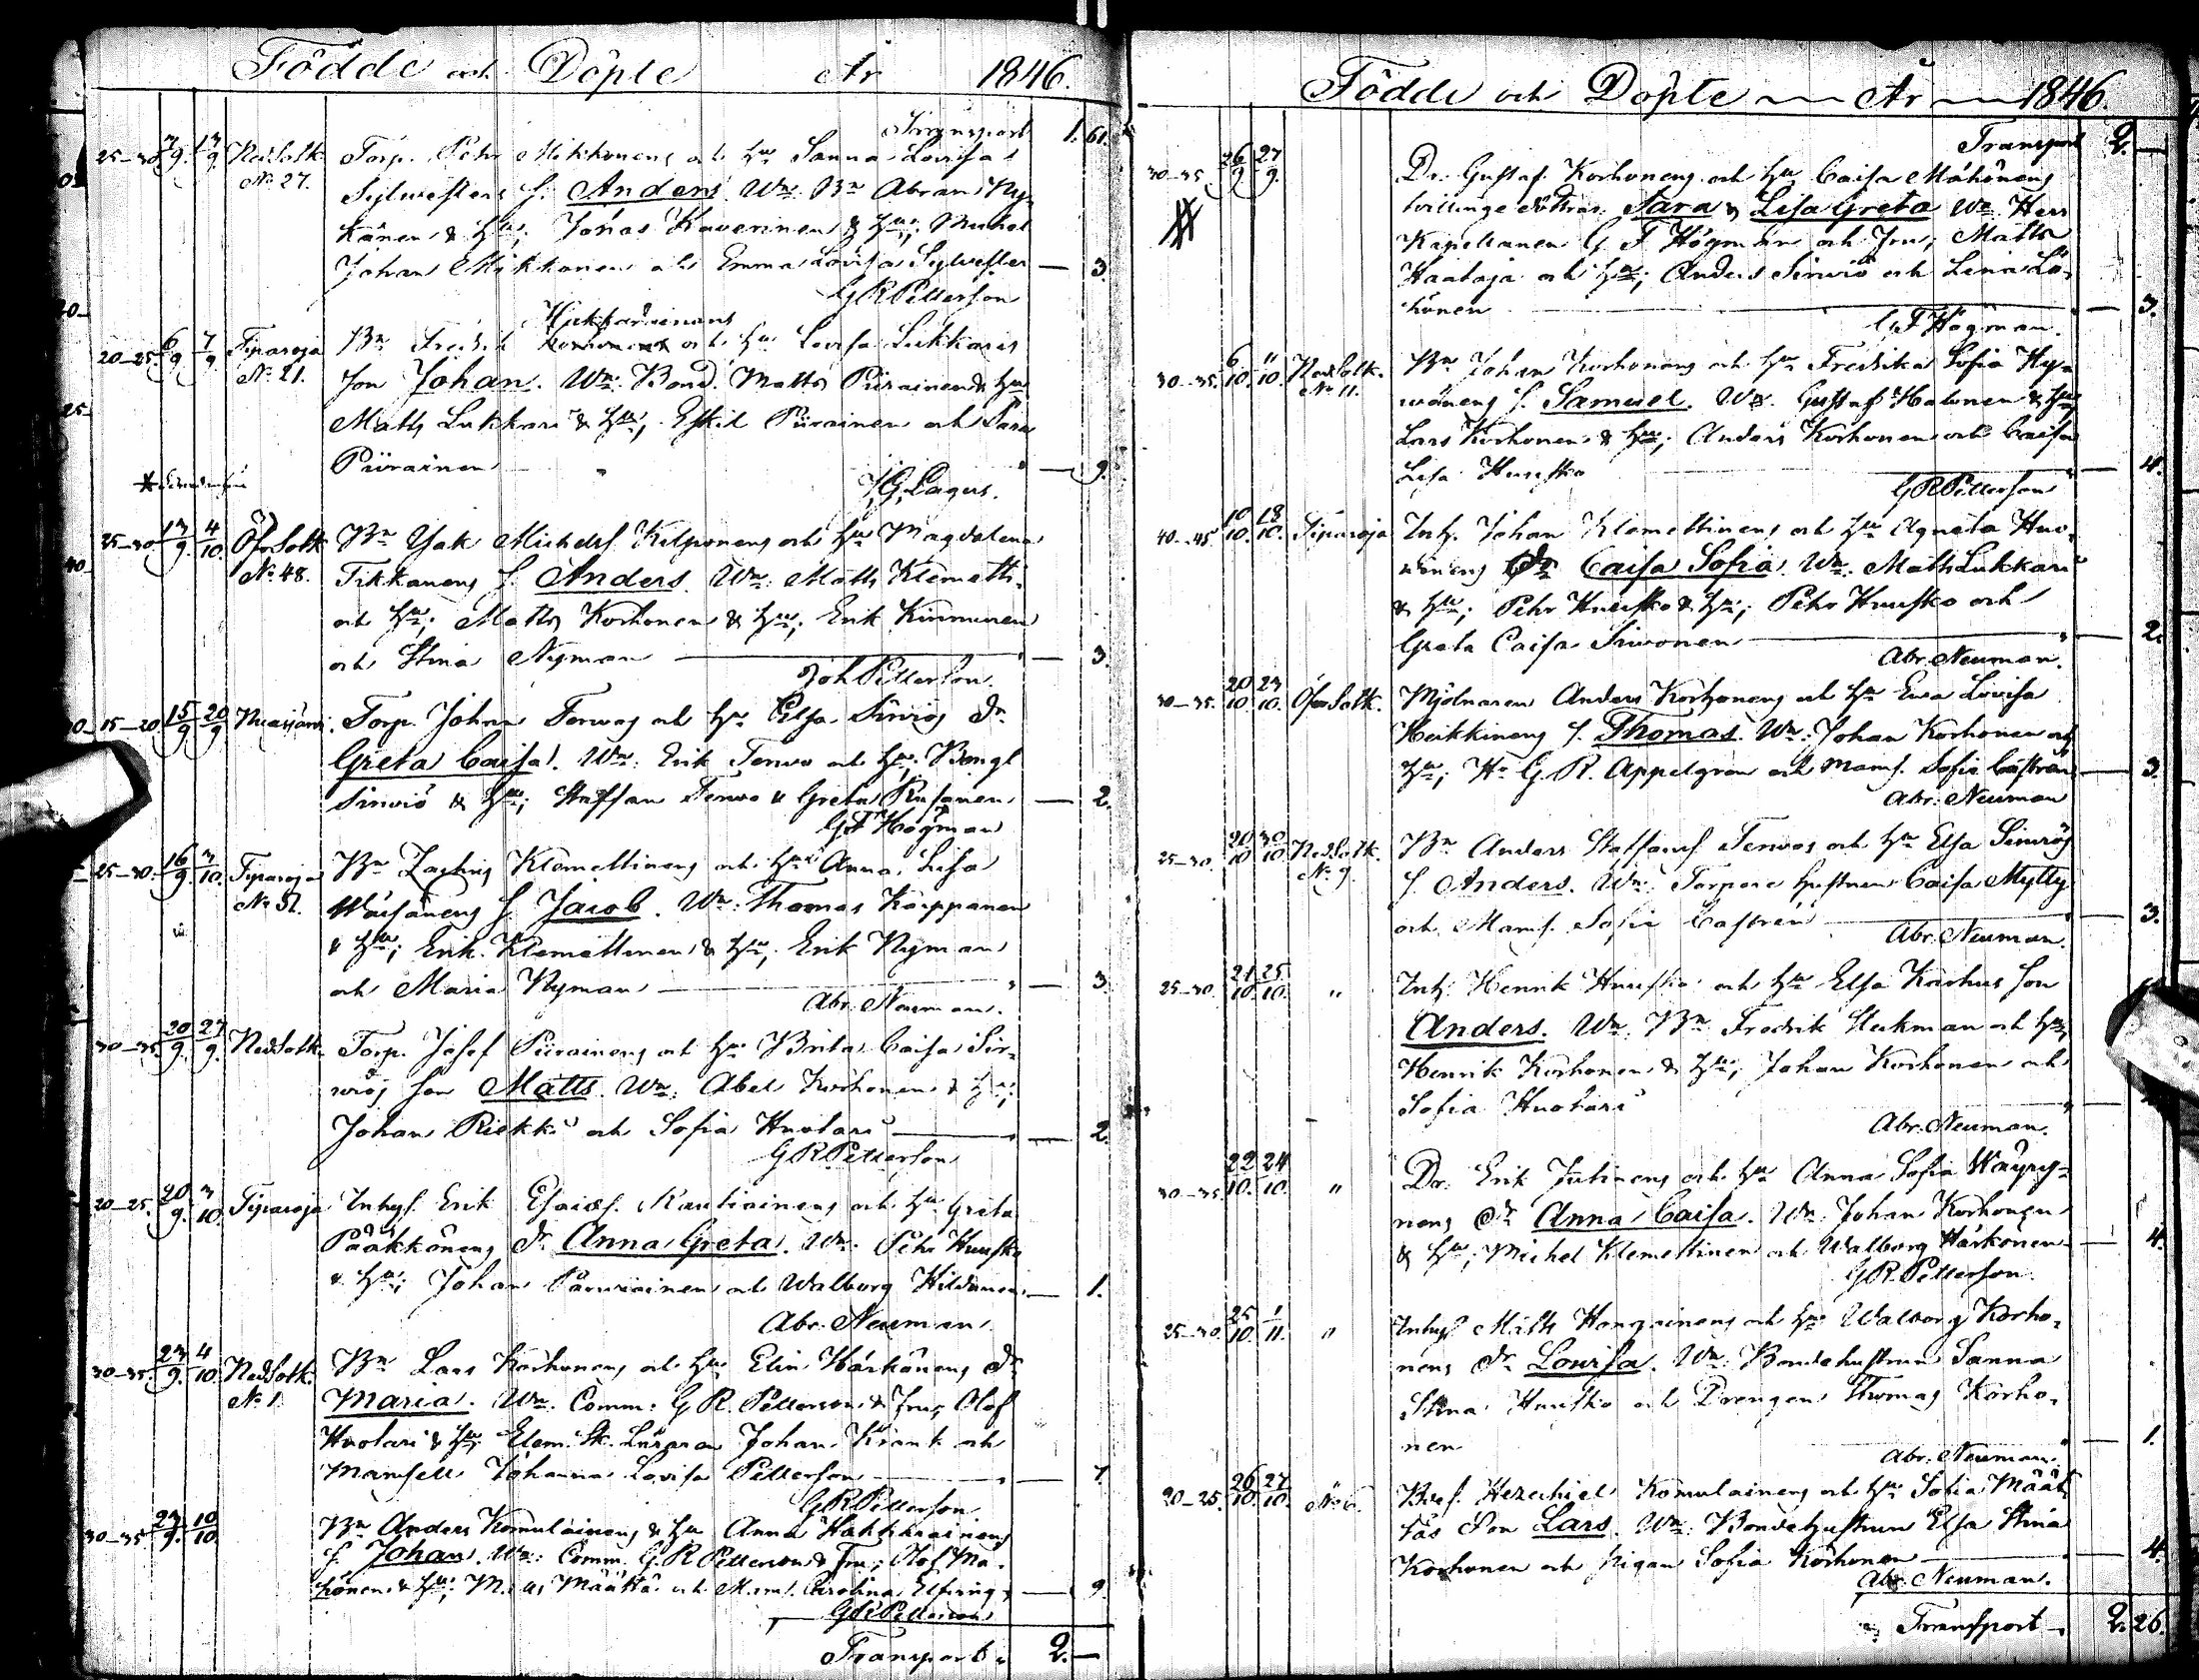 Födde och Döpte År 1846.
Transport 1. 61.
25-30. 7/9. 13/9. Ned Sotk. Torp. Pehr Mikkonens och Hu Sanna Lovisa
No 27. Sylwesters S. Anders. Wn: Bn Abram Ny-
känen & Hu; Jonas Kaverinen & Hu; Michel
Johan Mikkonen och Emma Lovisa Sylvester — 3.
G R Petterson
Hukkarainens
20-25. 6/9 7/9. Tiparoja Bn Fredrik och Hu Lovisa Lukkaris
No 21. Son Johan. Wn: Bond. Matts Piirainen & Hu
Matts Lukkari & Hu; Eskil Piirainen och Sara
Piirainen — 9.
J.G. Lagus.
25-30. 13/9. 4/10. Öfv Sotk. Bn Isak Michelss. Kilponens och Hu Magdalena
No 48. Tikkanens S. Anders. Wn: Matts Klemetti
och Hu; Matts Korhonen & Hu; Erik Kinnunen
och Stina Nyman — 3.
Joh Petterson.
15-20 15/9 20/9 Torp. Johan Terwos och Hu Elsa Sirviös Dr
Greta Caisa. Wn: Erik Terwo och Hu; Bengt
Sirviö & Hu; Staffan Terwo & Greta Rusanen — 2.
G F Högman
25-30. 16/9. 3/10. Tiparoja Bn Zachris Klemettinens och Hu Anna Lisa
No 52. Wäisänens S. Jacob. Wn: Thomas Karppanen
& Hu; Erik Klemettinen & Hu; Erik Nyman
och Maria Nyman — 3.
Abr. Neuman.
30-35. 20/9. 27/9. Ned Sotk. Torp. Josef Piirainens och Hu Brita Caisa Sir-
wiös Son Matts. Wn: Abel Korhonen & Hu;
Johan Riekki och Sofia Huotari — 2.
G R Petterson
20-25. 20/9. 3/10. Tiparoja Inhys. Erik Esaiæs. Rautiainens och Hu Greta
Pääkkönens Dr Anna Greta. Wn: Pehr Huusko
& Hu; Johan Parviainen och Walborg Hildunen — 1.
Abr. Neuman.
30-35. 23/9. 4/10. Ned Sotk. Bn Lars Korhonens och Hu Elin Härkönens Dr
No 1. Maria. Wn: Comm: G R Petterson & Fru; Olof
Huotari & Hu; Elem. Sk. Läraren Johan Krank och
Mamsell Johanna Lovisa Petterson — 7
G R Petterson.
30-35 23/9. 10/10. Bn Anders Komulainens & Hu Anna Hukkarainens
S. Johan. Wn: Comm. G R Petterson & Fru; Olof Mä-
hönen & Hu; Määttä och Mams. Carolina Elfving — 9.
G R Petterson
Transport 2. —
Födde och Döpte — År — 1846.
Transport 2. —
30-35 26/9 27/9. Dr. Gustaf Korhonens och Hu Caisa Mähönens
tvillinge döttrar Sara & Lisa Greta Wn Herr
Kapellanen G. F Högman och Fru; Matts
Haataja och Hu; Anders Sirviö och Lena Lö-
hönen — 3.
G F Högman.
30-35. 6/10. 11/10. Ned Sotk. Bn Johan Korhonens och Hu Fredrika Sofia Hy-
No 11. wönens S. Samuel. Wn. Gustaf Halonen & Hu
Lars Korhonen & Hu; Anders Korhonen och Caisa
Lisa Huusko — 4.
G R Petterson
40-45. 10/10. 18/10. Tiparoja Inh. Johan Klemettinens och Hu Agneta Huo-
winens Dr Caisa Sofia. Wn: Matts Lukkari
& Hu; Pehr Huusko & Hu; Pehr Huusko och
Greta Caisa Sirvonen — 2.
Abr. Neuman.
30-35. 20/10. 23/10. Öfv Sotk. Mjölnaren Anders Korhonens och Hu Eva Lovisa
Heikkinens S. Thomas. Wn: Johan Korhonen och
Hu; Hr G. R. Appelgren och Mams. Sofie Castrén — 3.
Abr. Neuman
25-30. 20/10 30/10 Ned Sotk. Bn Anders Staffanss. Terwos och Hu Elsa Sirviös
No 9. S. Anders. Wn: Torpare hustrun Caisa Mylly
och Mams. Sofie Castrén — 3.
Abr. Neuman.
25-30. 21/10. 25/10. " Inh: Henrik Huusko och Hu Elsa Karhus Son
Anders. Wn: Bn Fredrik Heikman och Hu;
Henrik Korhonen & Hu; Johan Korhonen och
Sofia Huotari
Abr. Neuman.
30-35. 22/10. 24/10. " Dr. Erik Jutinens och Hu Anna Sofia Wäyry-
nens Dr Anna Caisa. Wn: Johan Korhonen
& Hu; Michel Klemettinen och Walborg Härkönen — 4.
G R Petterson.
25-30. 25/10 1/11. " Inhys Matts Hongainens och Hu Walborg Korho-
nens Dr Lovisa. Wn: Bondehustrun Sanna
Stina Huusko och Drengen Thomas Korho-
nen — 1.
Abr. Neuman.
20-25. 26/10. 27/10. Bns. Hezechiel Komulainens och Hu Sofia Määt-
täs Son Lars. Wn: Bondehustrun Elsa Stina
Korhonen och Pigan Sofia Korhonen — 4.
Abr. Neuman.
Transport 2. 26.